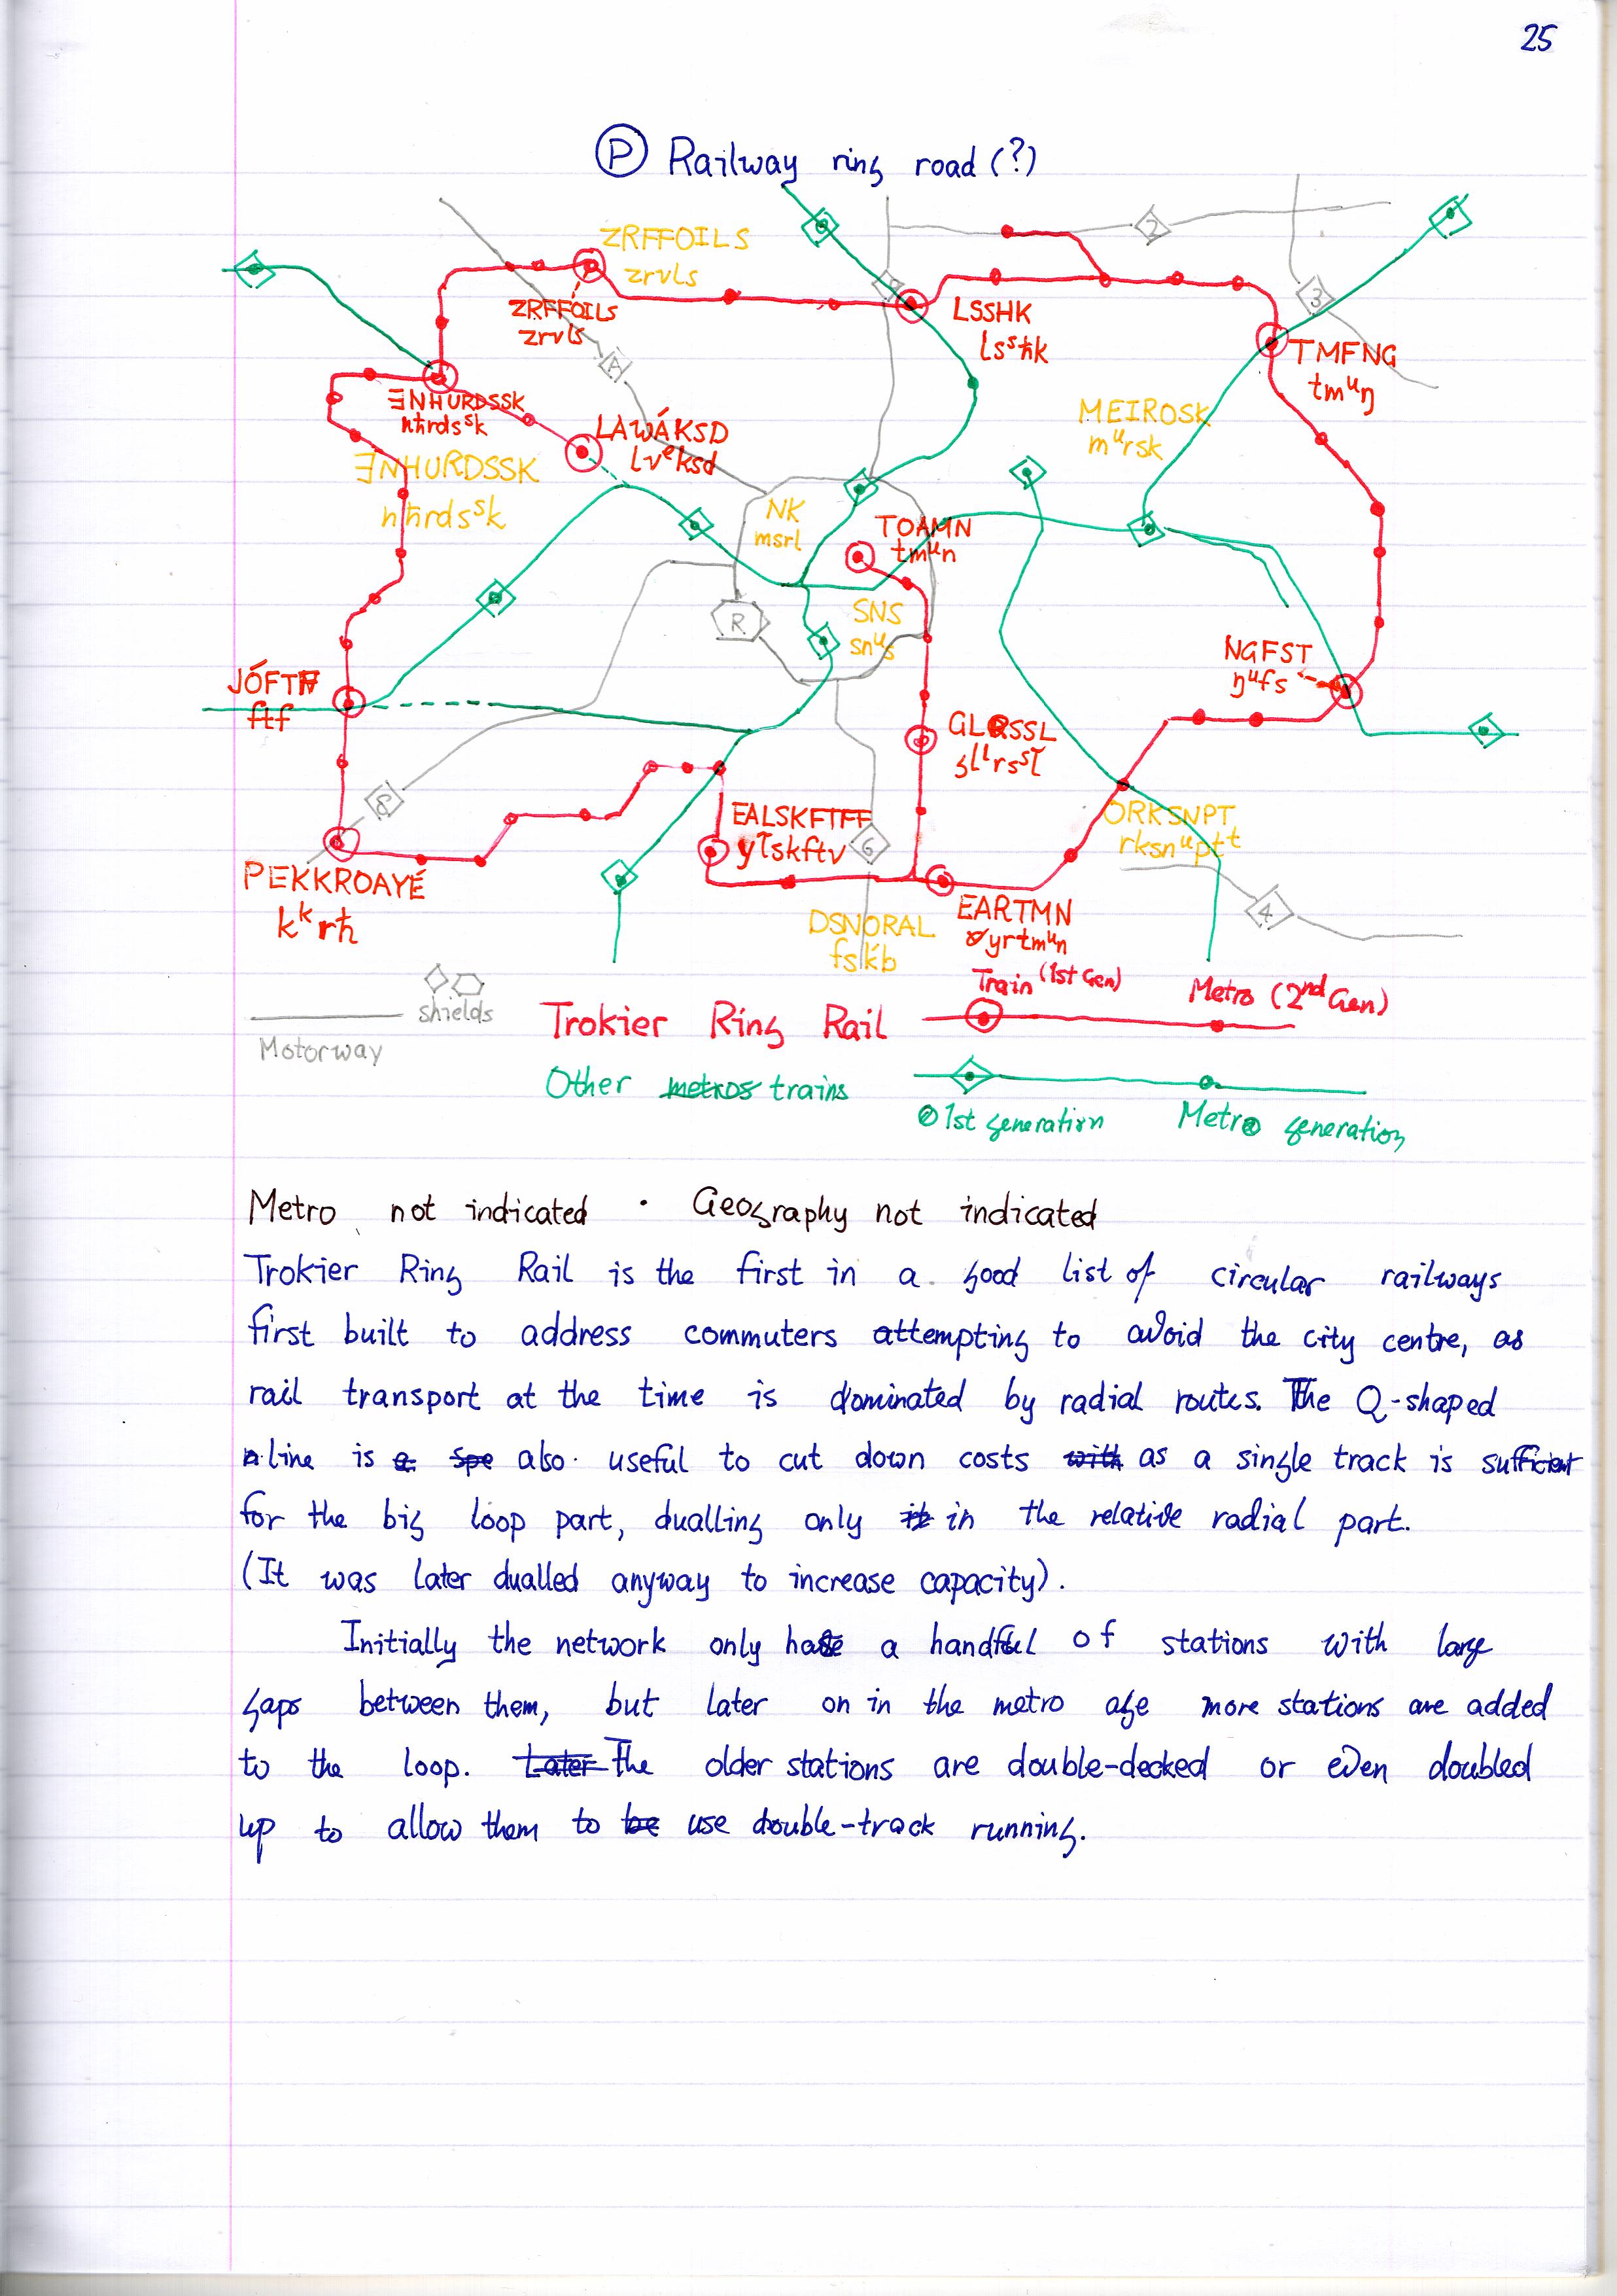 25
Ⓟ Railway ring road (?)
ZRFFOILS
zrvls
2
3
9
ZRFFOILS
zrvls
LSSHK
lsˢħk
TMFNG
tmᵘŋ
A
ƎNHURDSSK
nħrdsˢk
LAWÁKSD
lvᵉksd
MEIROSK
mᵘrsk
ƎNHURDSSK
nħrdsˢk
NK
msrl
TOAMN
tmᵘn
R
SNS
snᵘs
NGFST
ŋᵘfs
JÓFTH
ftf
GLRSSL
8
EALSKFTFF
6
ORKSNPT
rksnᵘptᵗ
PEKKROAYÉ
kᵏrħ
4
DSNORAL
fslkb
EARTMN
yrtmᵘn
shields
Motorway
Trokier Ring Rail
Train (1st Gen)
Metro (2nd Gen)
Other metros trains
1st generation
Metro generation
Metro not indicated · Geography not indicated
Trokier Ring Rail is the first in a good list of circular railways
first built to address commuters attempting to avoid the city centre, as
rail transport at the time is dominated by radial routes. The Q-shaped
line is a spe also useful to cut down costs with as a single track is sufficient
for the big loop part, dualling only it in the relative radial part.
(It was later dualled anyway to increase capacity).
Initially the network only has a handful of stations with large
gaps between them, but later on in the metro age more stations are added
to the loop. Later The older stations are double-decked or even doubled
up to allow them to be use double-track running.